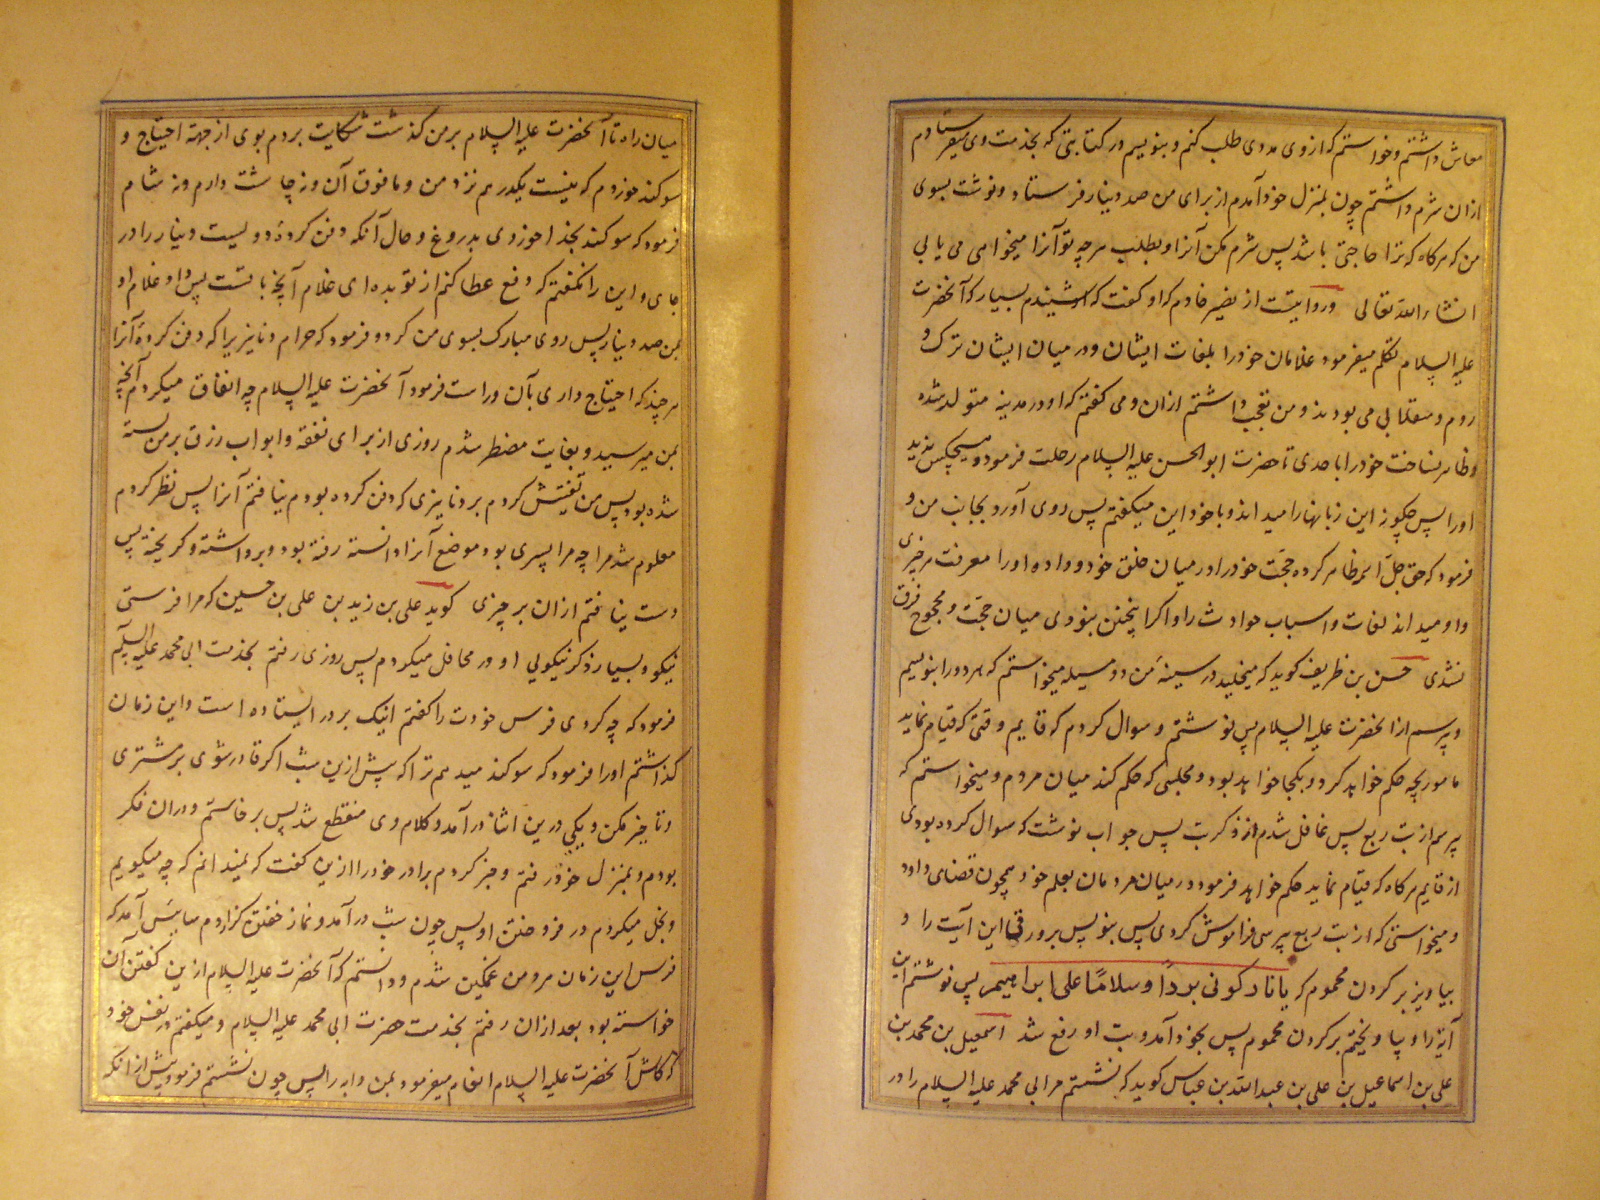 معاش داشتم و خواستم که از وی مددی طلب کنم و بنویسم در کتابتی که بخدمت وی میفرستادم
ازان شرم داشتم چون بمنزل خود آمدم از برای من صد دینار فرستاد و نوشت بسوی
من که هرکاه که ترا حاجتی باشد پس شرم مکن آنرا و بطلب هرچه تو آنرا میخواهی می یابی
انشاء الله تعالی وروایتست از نصیر خادم که او کفت که شنیدم بسیار که آنحضرت
علیه السلام تکلم میفرمود غلامان خود را بلغات ایشان و در میان ایشان ترک و
روم و سقلابی می بودند و من تعجب داشتم ازان و می کفتم که او در مدینه متولد شده
و ظاهر نساخت خود را باحدی تا حضرت ابوالحسن علیه السلام رحلت فرمود و هیچکس ندید
او را پس چکونه این زبانها را میداند و با خود این میکفتم پس روی آورد بجانب من و
فرمود که حق جل اسمه ظاهر کرده حجت خود را در میان خلق خود و داده او را معرفت هر چیزی
و او میداند لغات و اسباب حوادث را و اکر اینچنین نبودی میان حجت و محجوج فرق
نشدی حسن بن ظریف کوید که میخلید در سینهٔ من دو مسیله میخواستم که هر دو را بنویسم
و بپرسم از انحضرت علیه السلام پس نوشتم و سوال کردم که قایم وقتی که قیام نماید
مامور بچه حکم خواهد کرد و بکجا خواهد بود و مجلسی که حکم کند میان مردم و میخواستم که
پرسم از تب ربع پس غافل شدم از ذکر تب پس جواب نوشت که سوال کرده بودی
از قایم هرکاه که قیام نماید حکم خواهد فرمود در میان مردمان بعلم خود همچون قضای داود
و میخواستی که از تب ربع پرسی فراموش کردی پس بنویس برورقی این آیت را و
بیاویز بر کردن محموم که یا نار کونی بردًا وسلامًا علی ابراهیم پس نوشتم این
آیة را و بیاویختم بر کردن محموم پس بخود آمد و تب او رفع شد اسمعیل بن محمد بن
علی بن اسماعیل بن علی بن عبدالله بن عباس کوید که نشستم مر ابی محمد علیه السلام را در
میان راه تا آنحضرت علیه السلام بر من کذشت شکایت بردم بوی از جهة احتیاج و
سوکند خوردم که نیست یکدرهم نزد من و مافوق آن و نه چاشت دارم و نه شام
فرمود که سوکند بخدا خوردی بدروغ و حال آنکه دفن کردهٔ دویست دینار را در
جای و این را نکفتم که دفع عطا کنم از تو بده ای غلام آنچه با تست پس داد غلام او
بمن صد دینار پس روی مبارک بسوی من کرد و فرمود که حرام دنانیر زیرا که دفن کردهٔ آنرا
هرچند که احتیاج داری بآن و راست فرمود آنحضرت علیه السلام چه انفاق میکردم آنچه
بمن میرسید و بغایت مضطر شدم روزی از برای نفقه و ابواب رزق بر من بسته
شده بود پس من تفتیش کردم بر دنانیری که دفن کرده بودم نیافتم آنرا پس نظر کردم
معلوم شد مرا چه مرا پسری بود موضع آنرا دانسته رفته بود و برداشته و کریخته پس
دست نیافتم ازان بر چیزی کوید علی بن زید بن علی بن حسین که مرا فرستی
نیکو و بسیار ذکر نیکویی او در محافل میکردم پس روزی رفتم بخدمت ابی محمد علیه السلام
فرمود که چه کردی فرس خودت را کفتم اینک بر در ایستاده است و این زمان
کذاشتم او را فرمود که سوکند میدهم ترا که پیش ازین شب اکر قادر شوی بر مشتری
و تاخیر مکن و یکی درین اثنا در آمد و کلام وی منقطع شد پس برخاستم و دران فکر
بودم و بمنزل خود رفتم و خبر کردم برادر خود را ازین کفت که نمیدانم که چه میکویم
و بخل میکردم در فروختن او پس چون شب در آمد و نماز خفتن کزاردم سایس آمد که
فرس این زمان مرد من غمکین شدم و دانستم که آنحضرت علیه السلام ازین کفتن آن
خواسته بود بعد ازان رفتم بخدمت حضرت ابی محمد علیه السلام و میکفتم در نفس خود
که کاش آنحضرت علیه السلام انعام میفرمود بمن دابه را پس چون نشستم فرمود پیش از انکه